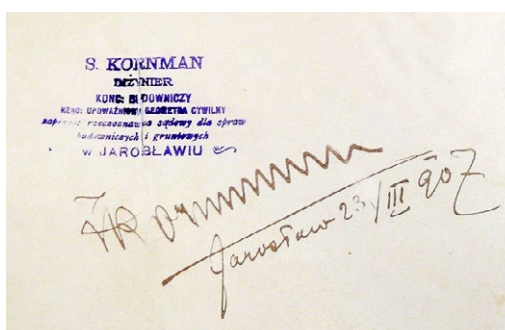 S. KORNMAN
INŻYNIER
KONC: BUDOWNICZY
RZĄD: UPOWAŻNIONY GEOMETRA CYWILNY
zaprzys: rzeczoznawca sądowy dla spraw
budowniczych i gruntowych
W JAROSŁAWIU
SKornman
Jarosław 23/III 907